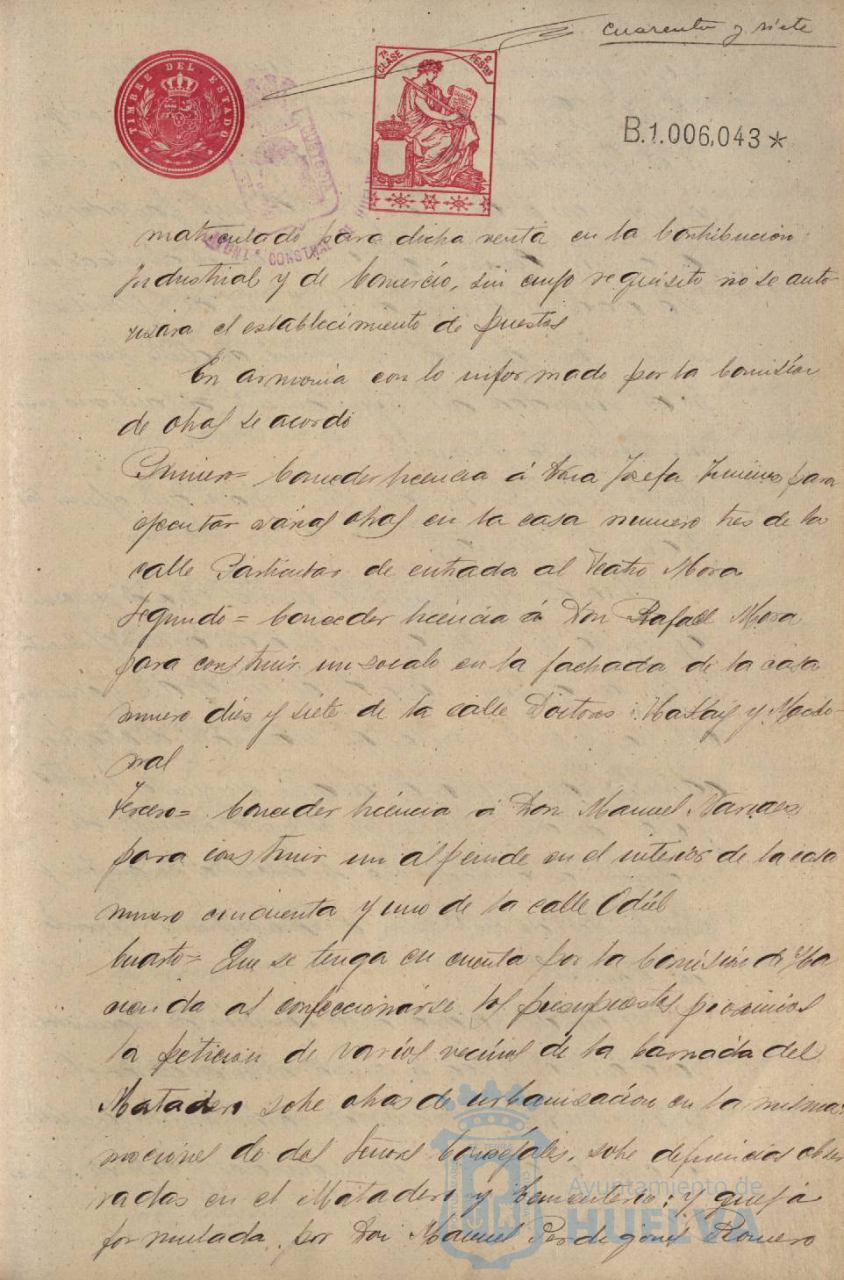 cuarenta y siete
TIMBRE DEL ESTADO
7ª CLASE
PESETAS
B.1.006.043*
CONSTITUCIONAL
matriculado para dicha venta en la Contribucion
Industrial y de Comercio, sin cuyo requisito no se auto-
rizára el establecimiento de puestos
En armonia con lo informado por la Comisión
de obras se acordó
Primero= Conceder licencia á Doña Josefa Jimenez para
ejecutar várias obras en la casa numero tres de la
calle Particular de entrada al Teatro Mora
Segundo= Conceder licencia á Don Rafael Mora
para construir un zocalo en la fachada de la casa
numero diez y siete de la calle Doctores
Tercero= Conceder licencia á Don Manuel
para construir un alpende en el interior de la casa
numero cincuenta y uno de la calle Odiel
Cuarto= Que se tenga en cuenta por la Comisión de Ha
cienda al confeccionarse los presupuestos proximos
la peticion de varios vecinos de la barriada del
Matadero sobre obras de urbanización en la misma:
mociones de los Señores Concejales, sobre deficiencias obser
vadas en el Matadero y Cementerio: y queja
formulada por Don Manuel Perdigones Romero
Ayuntamiento de
HUELVA